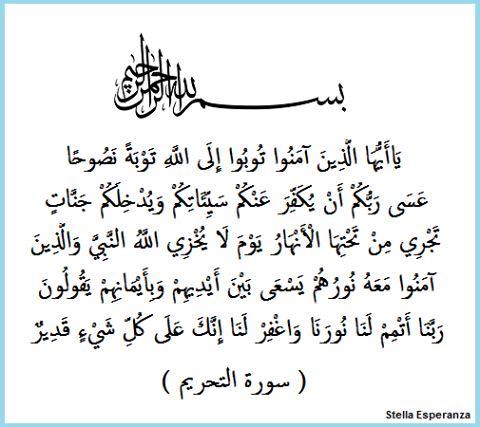 بسم الله الرحمن الرحيم
يَاأَيُّهَا الَّذِينَ آمَنُوا تُوبُوا إِلَى اللَّهِ تَوْبَةً نَصُوحًا
عَسَى رَبُّكُمْ أَنْ يُكَفِّرَ عَنْكُمْ سَيِّئَاتِكُمْ وَيُدْخِلَكُمْ جَنَّاتٍ
تَجْرِي مِنْ تَحْتِهَا الْأَنْهَارُ يَوْمَ لَا يُخْزِي اللَّهُ النَّبِيَّ وَالَّذِينَ
آمَنُوا مَعَهُ نُورُهُمْ يَسْعَى بَيْنَ أَيْدِيهِمْ وَبِأَيْمَانِهِمْ يَقُولُونَ
رَبَّنَا أَتْمِمْ لَنَا نُورَنَا وَاغْفِرْ لَنَا إِنَّكَ عَلَى كُلِّ شَيْءٍ قَدِيرٌ
( سورة التحريم )
Stella Esperanza